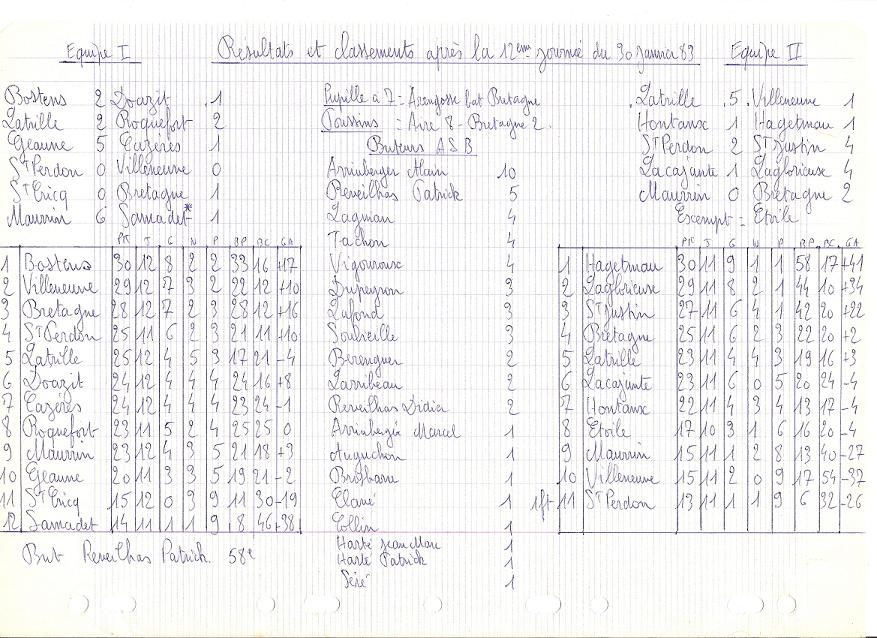 Equipe I
Résultats et classements après la 12ème journée du 30 Janvier 83
Equipe II
Bostens 2 Doazit 1
Latrille 2 Roquefort 2
Geaune 5 Cazères 1
St Perdon 0 Villeneuve 0
St Cricq 0 Bretagne 1
Maurrin 6 Samadet* 1
Pupille à 7 = Arengosse bat Bretagne
Poussins = Aire 8 - Bretagne 2
Buteurs A S B
Arrimberger Alain 10
Reveilhas Patrick 5
Lagman 4
Tachon 4
Vigouroux 4
Dupeyron 3
Lafond 3
Soubeille 3
Berenguer 2
Larribeau 2
Reveilhas Didier 2
Marcel 1
Auguchon 1
Brosbane 1
1
Collin 1
Harté Jean Marc 1
Harté Patrick 1
Séré 1
Latrille 5 Villeneuve 1
Hontanx 1 Hagetmau 1
St Perdon 2 St Justin 4
Lacajunte 1 Laglorieuse 4
Maurrin 0 Bretagne 2
Excempt = Etoile
Pt J G N P BP BC GA
1 Bostens 30 12 8 2 2 33 16 +17
2 Villeneuve 29 12 7 3 2 22 12 +10
3 Bretagne 28 12 7 2 3 28 12 +16
4 St Perdon 25 11 6 2 3 21 11 +10
5 Latrille 25 12 4 5 3 17 21 -4
6 Doazit 24 12 4 4 4 24 16 +8
7 Cazères 24 12 4 4 4 23 24 -1
8 Roquefort 23 11 5 2 4 25 25 0
9 Maurrin 23 12 4 3 5 21 18 +3
10 Geaune 20 11 3 3 5 19 21 -2
11 St Cricq 15 12 0 3 9 11 30 -19
12 Samadet 14 11 1 1 9 8 46 -38
But Reveilhas Patrick 58e
Pt J G N P BP BC GA
1 Hagetmau 30 11 9 1 1 58 17 +41
2 Laglorieuse 29 11 8 2 1 44 10 +34
3 St Justin 27 11 6 4 1 42 20 +22
4 Bretagne 25 11 6 2 3 22 20 +2
5 Latrille 23 11 4 4 3 19 16 +3
6 Lacajunte 23 11 6 0 5 20 24 -4
7 Hontanx 22 11 4 3 4 13 17 -4
8 Etoile 17 10 3 1 6 16 20 -4
9 Maurrin 15 11 1 2 8 13 40 -27
10 Villeneuve 15 11 2 0 9 17 54 -37
1ft 11 St Perdon 13 11 1 1 9 6 32 -26